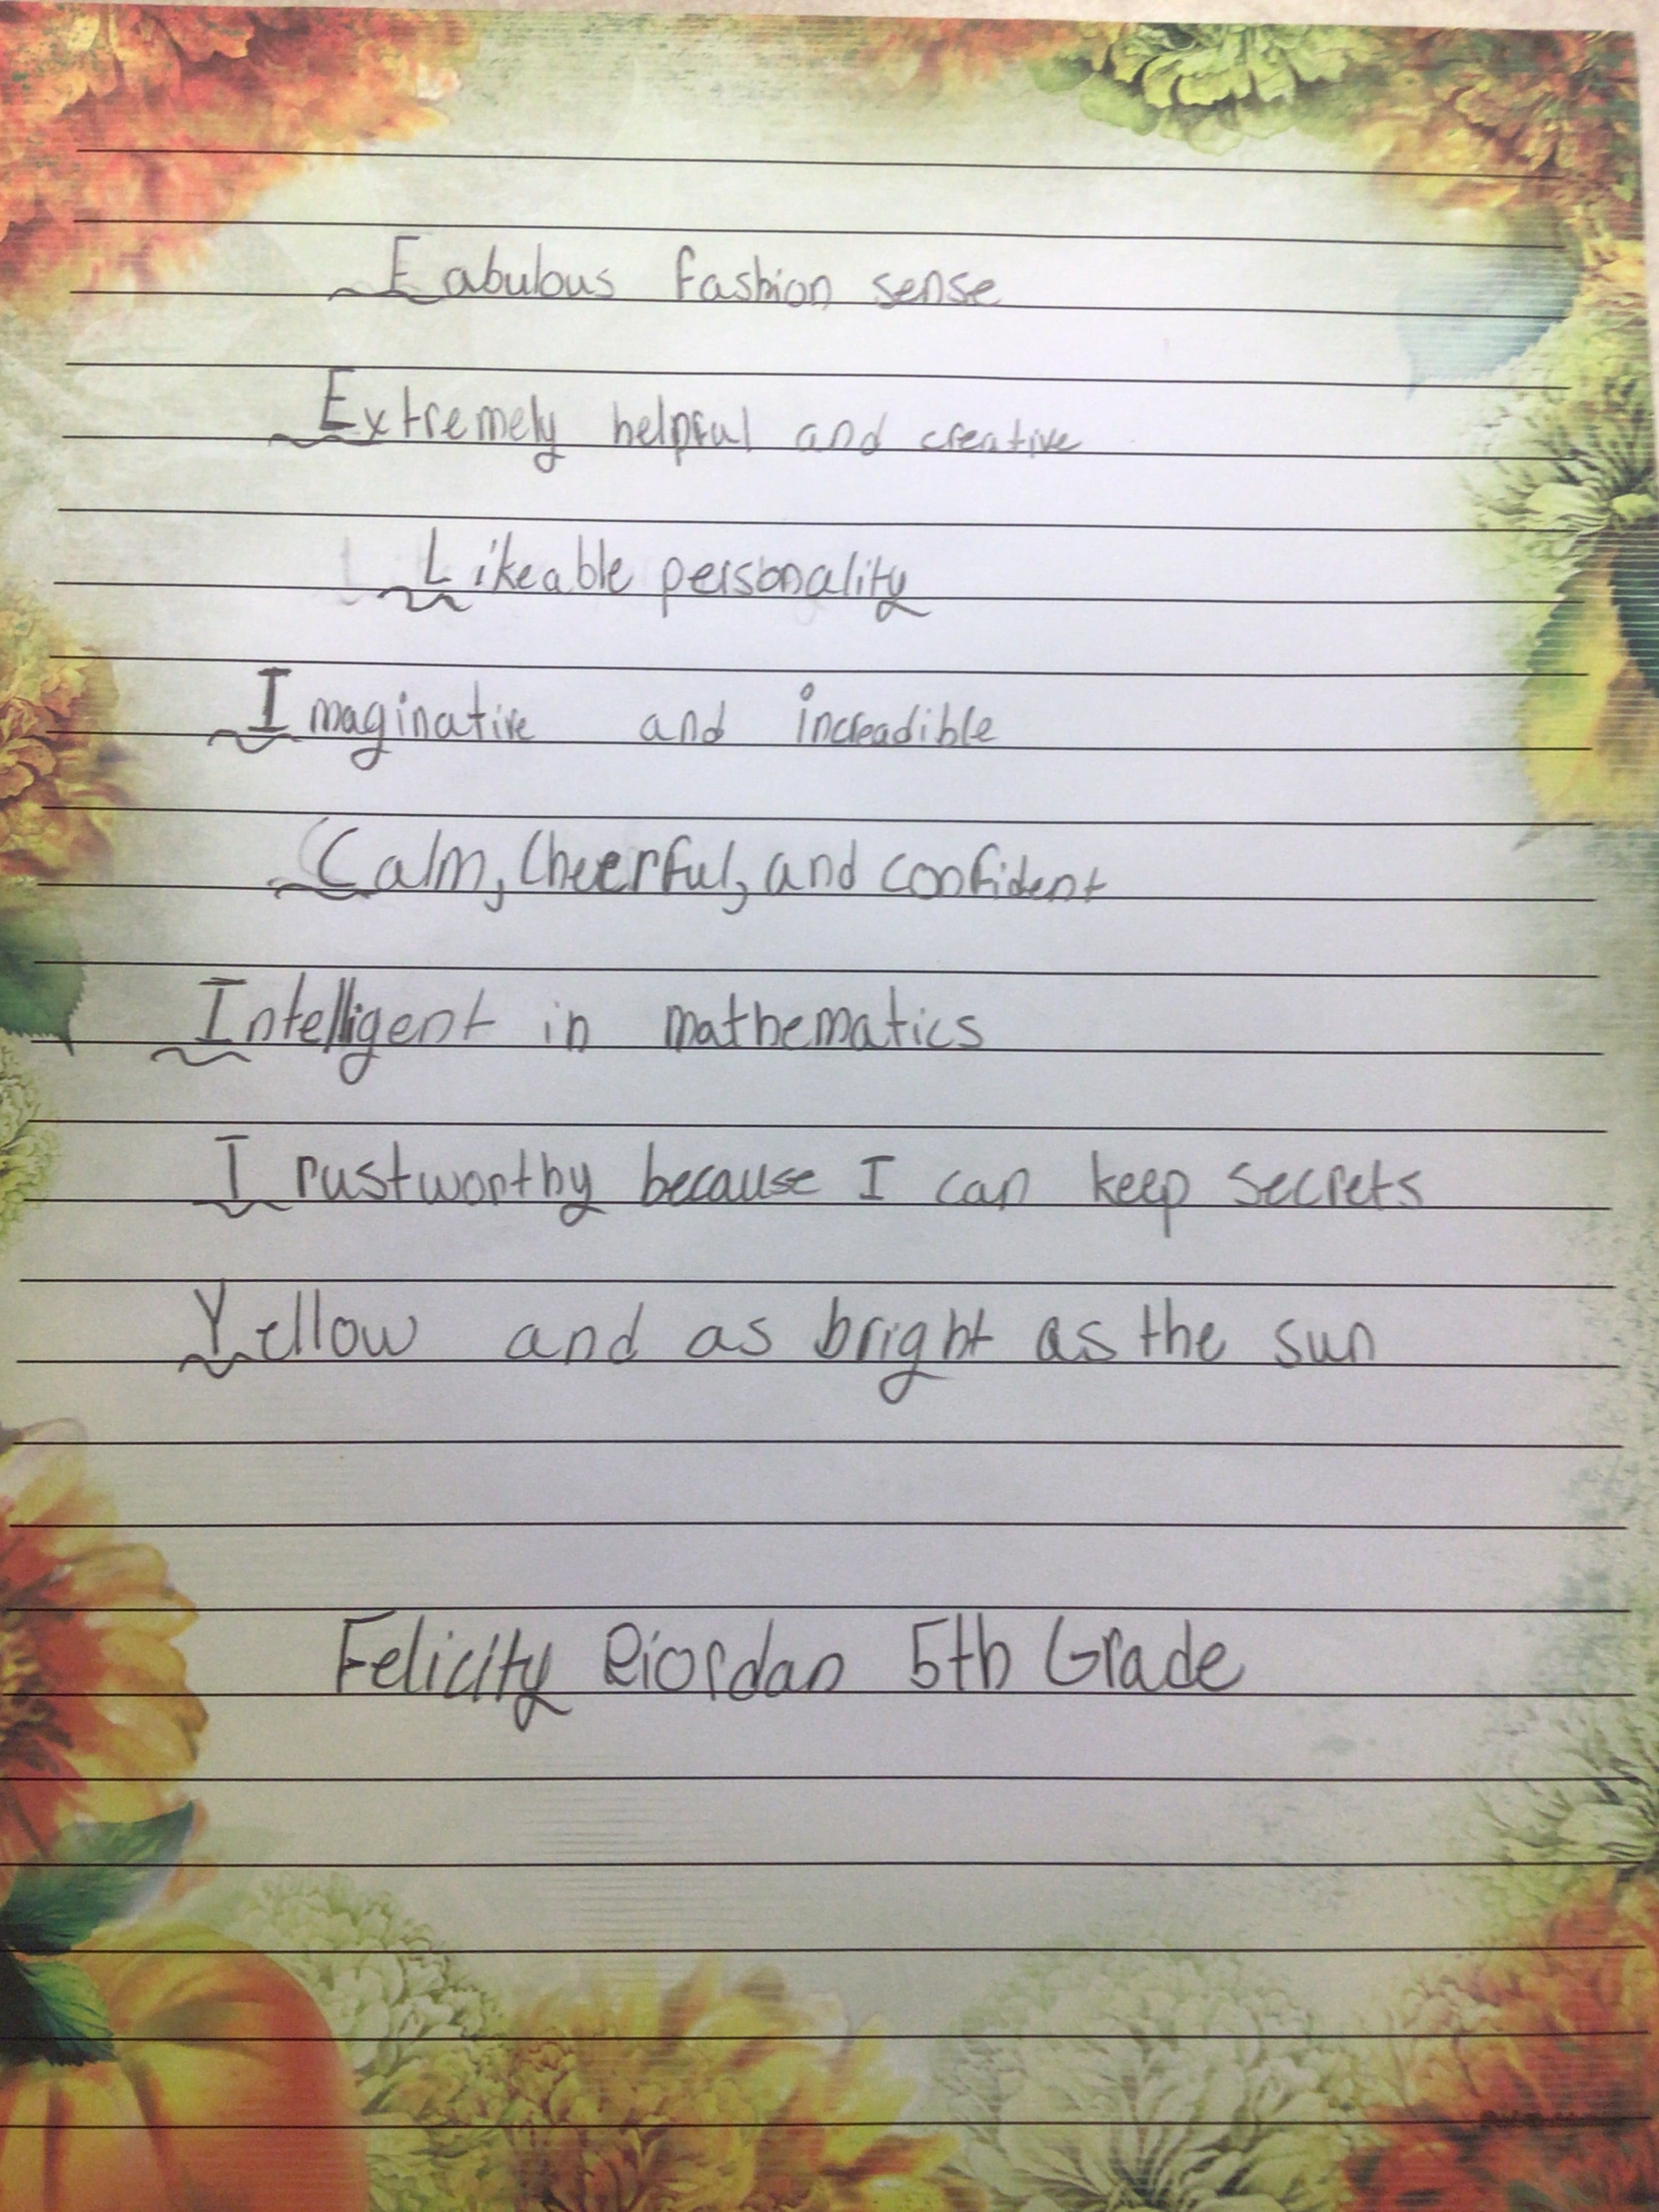 Fabulous fashion sense
Extremely helpful and creative
Likeable personality
Imaginative and increadible
Calm, Cheerful, and confident
Intelligent in mathematics
Trustworthy because I can keep secrets
Yellow and as bright as the sun
Felicity Riordan 5th Grade